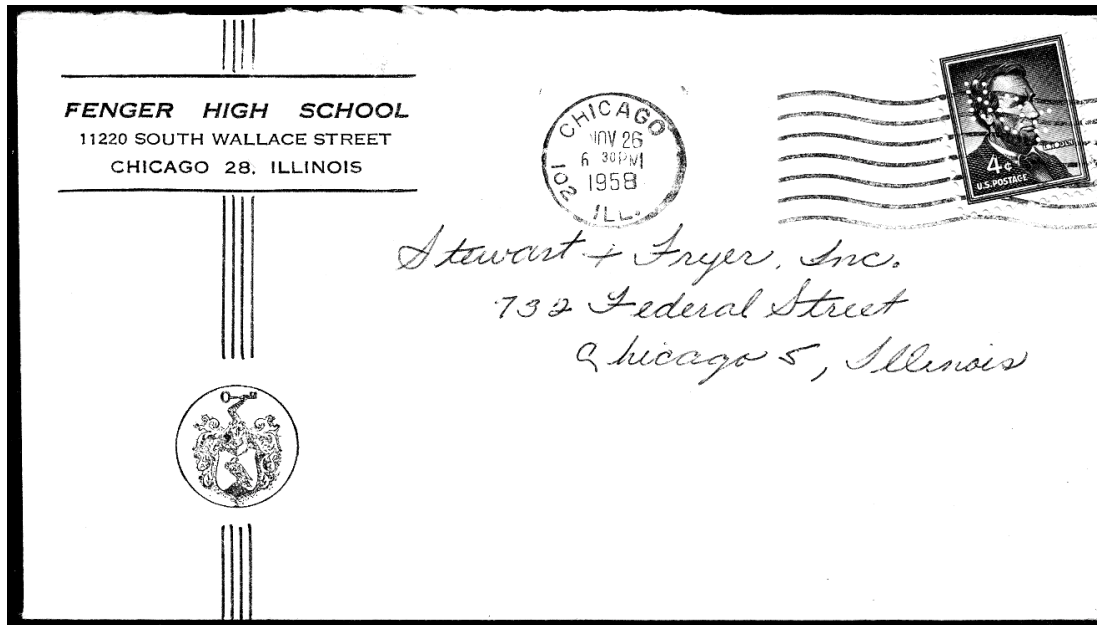 FENGER HIGH SCHOOL
11220 SOUTH WALLACE STREET
CHICAGO 28, ILLINOIS
CHICAGO
NOV 26
6 30PM
1958
102
ILL.
4¢
U.S. POSTAGE
Stewart + Fryer, Inc.
732 Federal Street
Chicago 5, Illinois